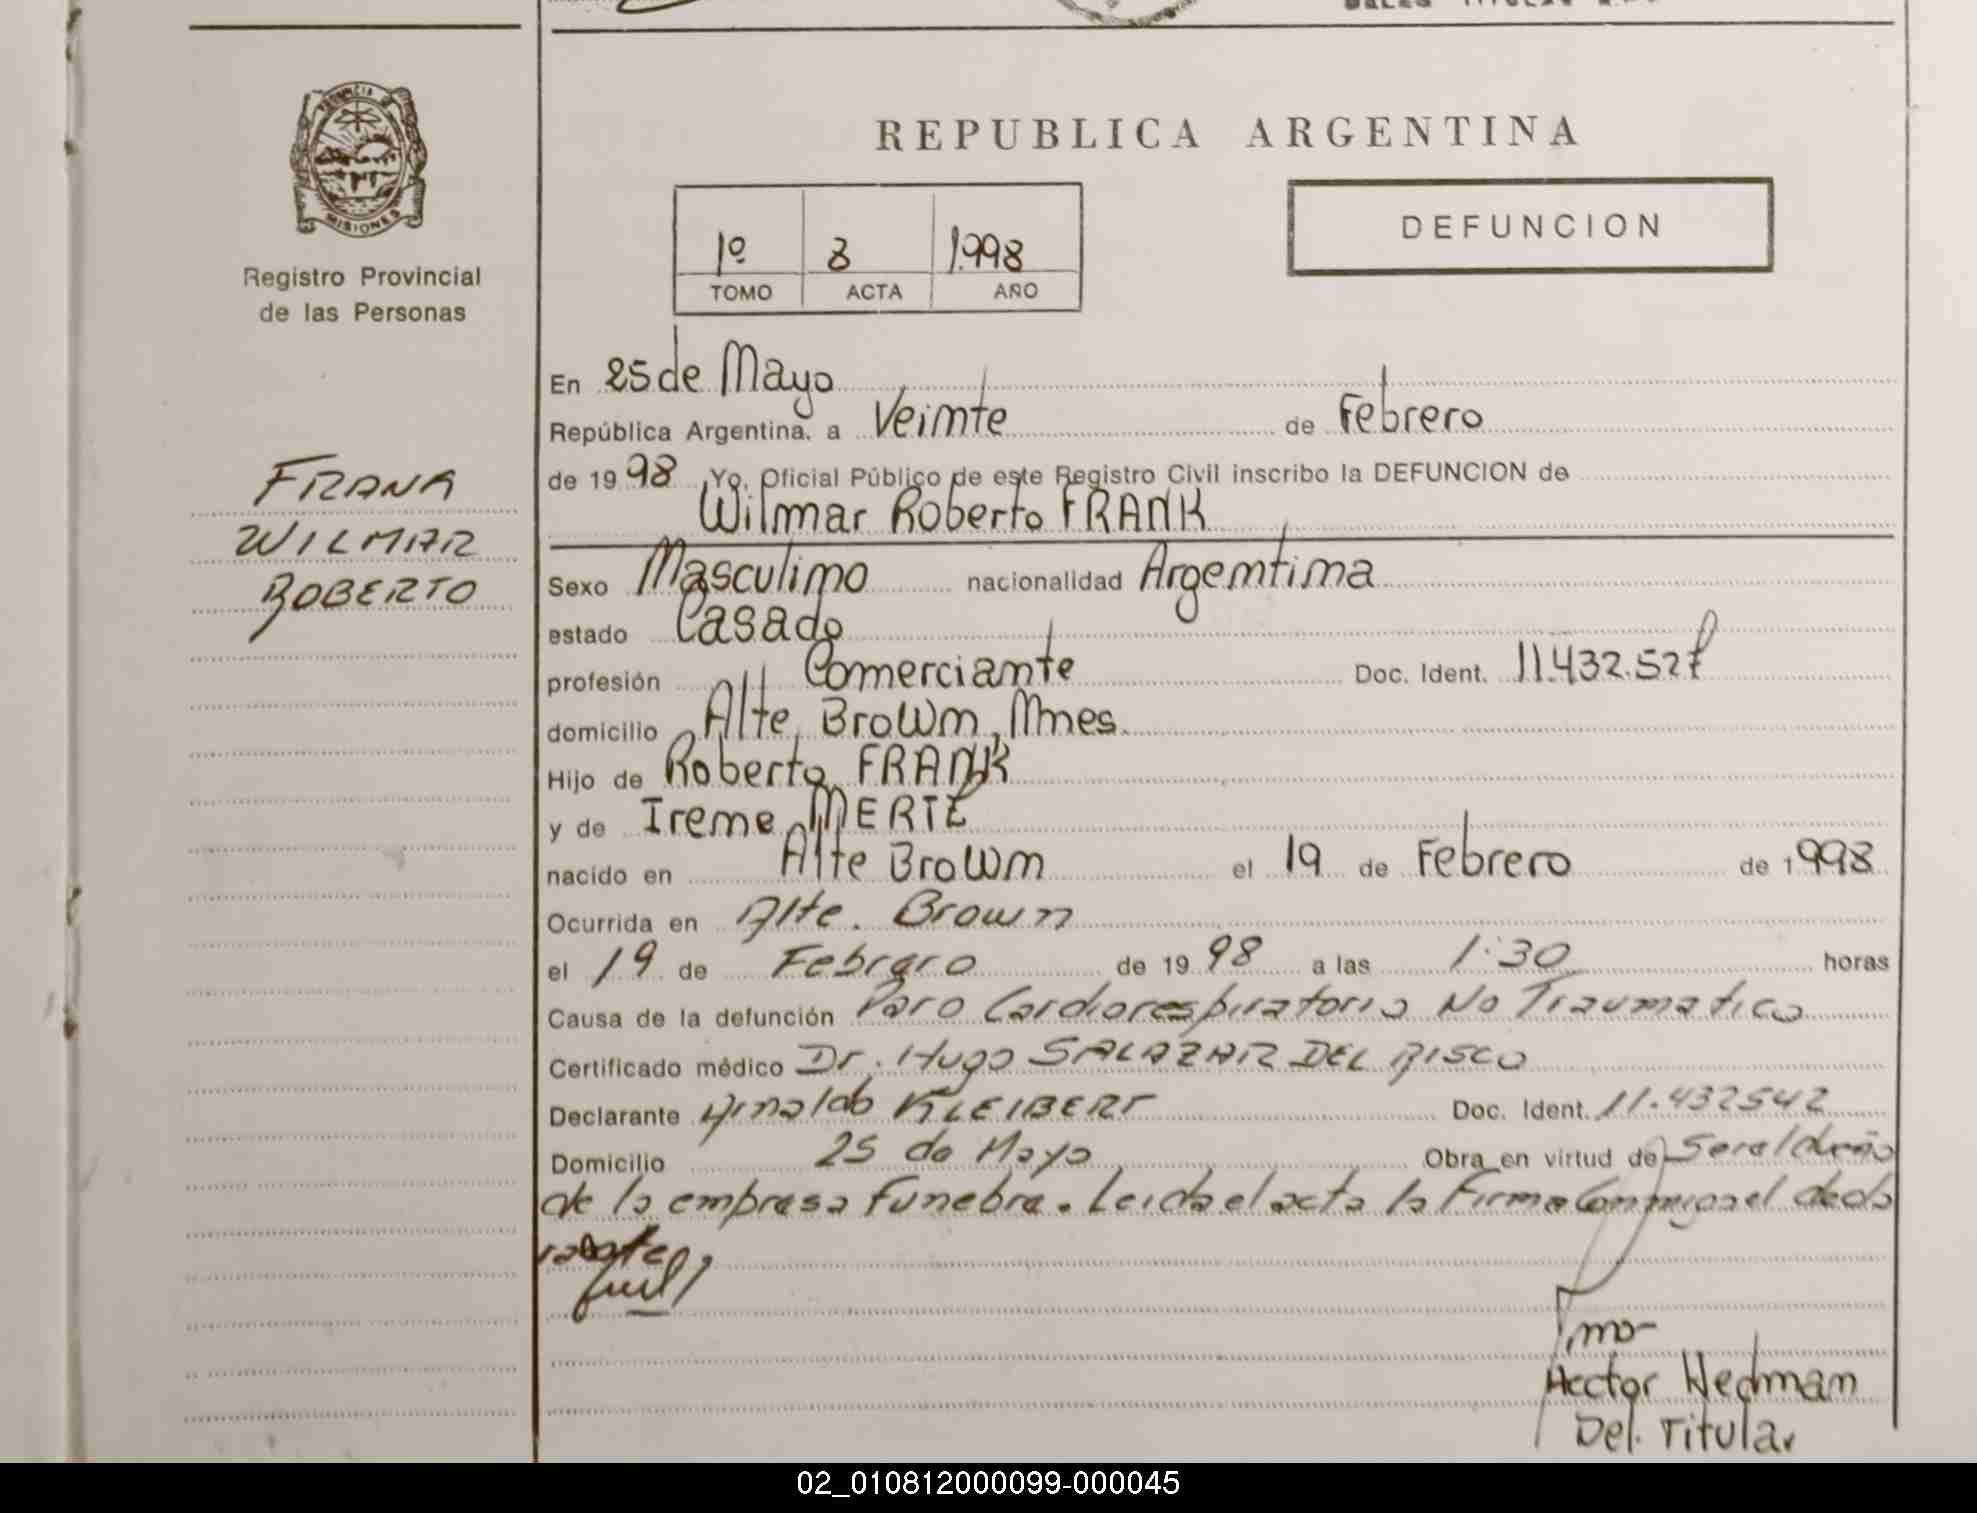 PROVINCIA D
MISIONES
Registro Provincial
de las Personas
FRANK
WILMAR
ROBERTO
REPUBLICA ARGENTINA
1º 8 1.998
TOMO ACTA AÑO
DEFUNCION
En 25 de Mayo
República Argentina, a Veinte de Febrero
de 19 98 Yo, Oficial Público de este Registro Civil inscribo la DEFUNCION de
Wilmar Roberto FRANK
Sexo Masculino nacionalidad Argentina
estado Casado
profesión Comerciante Doc. Ident. 11.432.527
domicilio Alte Brown, Mnes.
Hijo de Roberto FRANK
y de Irene MERTE
nacido en Alte Brown el 19 de Febrero de 1998
Ocurrida en Alte. Brown
el 19 de Febrero de 19 98 a las 1:30 horas
Causa de la defunción Paro Cardiorespiratorio No Traumatico
Certificado médico Dr. Hugo SALAZAR DEL RISCO
Declarante Arnaldo KLEIBERT Doc. Ident. 11.432542
Domicilio 25 de Mayo Obra en virtud de Ser el dueño
de la empresa Funebre. Leida el acta la Firma Conmigo el decla
rante
Hector Hedman
Del. Titular
02_010812000099-000045